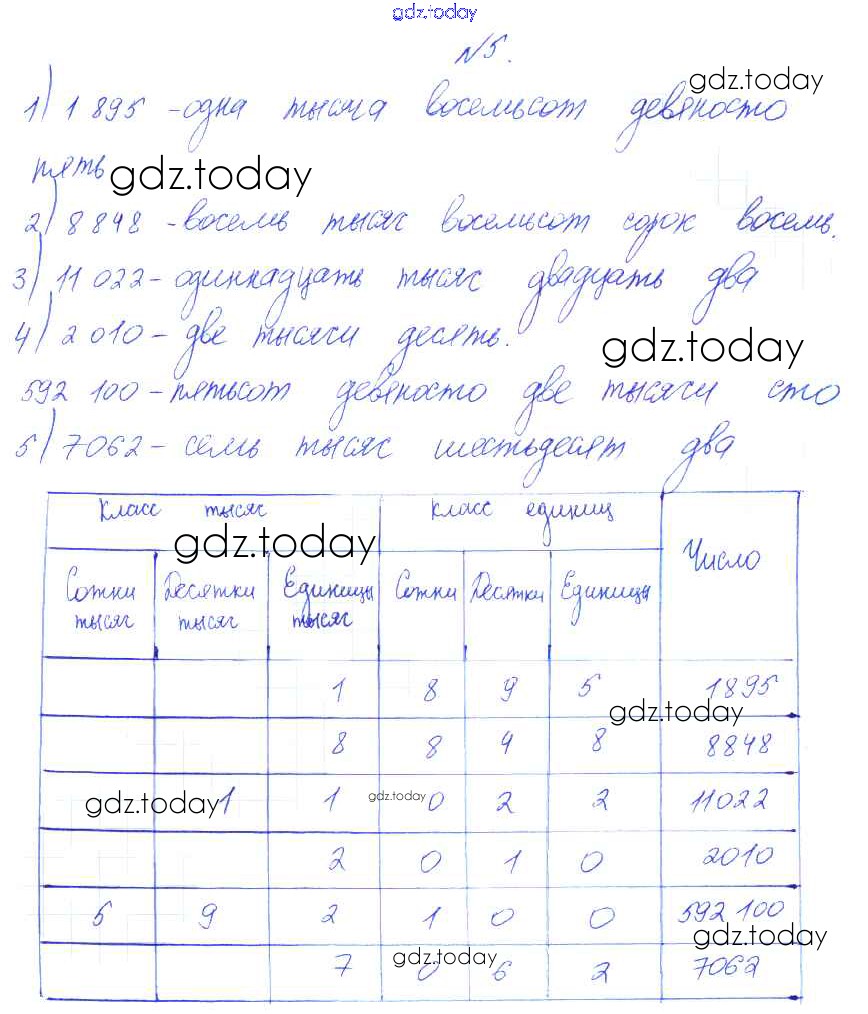 gdz.today
№5.
gdz.today
1) 1 895 - одна тысяча восемьсот девяносто
пять
gdz.today
2) 8 848 - восемь тысяч восемьсот сорок восемь.
3) 11 022 - одиннадцать тысяч двадцать два
4) 2 010 - две тысячи десять.
gdz.today
592 100 - пятьсот девяносто две тысячи сто
5) 7062 - семь тысяч шестьдесят два
Класс тысяч Класс единиц Число
gdz.today
Сотни тысяч Десятки тысяч Единицы тысяч Сотни Десятки Единицы
1 8 9 5 1895
gdz.today
8 8 4 8 8848
gdz.today
gdz.today
1 1 0 2 2 11022
2 0 1 0 2010
5 9 2 1 0 0 592 100
gdz.today
gdz.today
7 0 6 2 7062